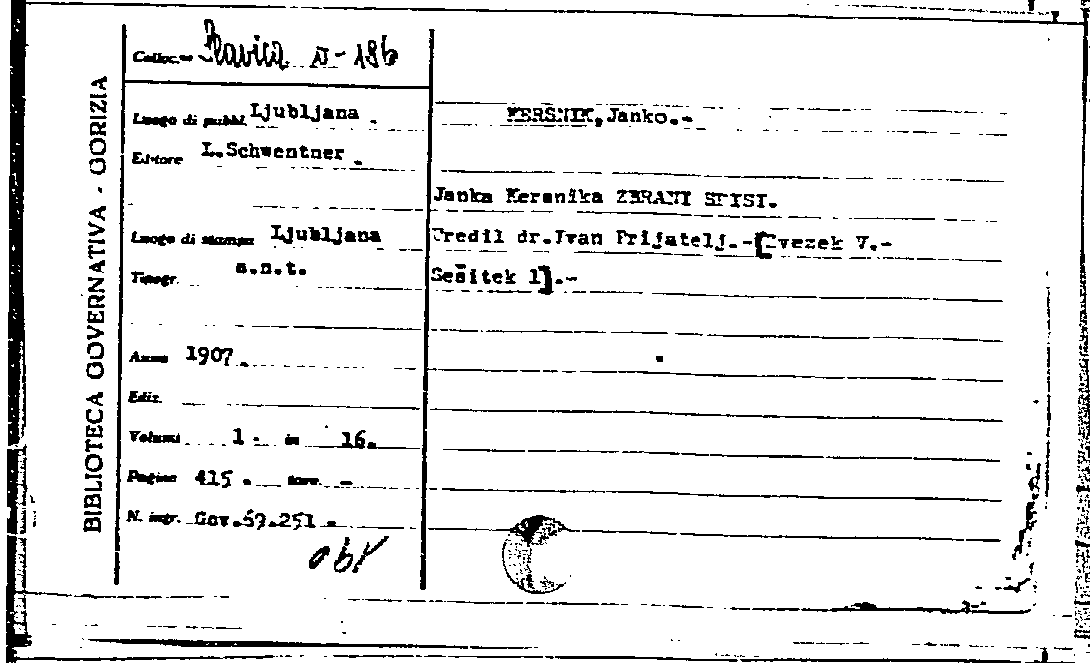 BIBLIOTECA GOVERNATIVA - GORIZIA
Colloc.ne Slavica N-186
Luogo di pubbl. Ljubljana .
Editore L.Schwentner .
Luogo di stampa Ljubljana
Tipogr. s.n.t.
Anno 1907.
Ediz.
Volumi 1. in 16.
Pagine 415 . tav. -
N. ingr. Gov.69.251 .
KERSNIK,Janko.-
Janka Kersnika ZBRANI SPISI.
Uredil dr.Ivan Prijatelj.-[Zvezek V.-
Sešitek 1].-